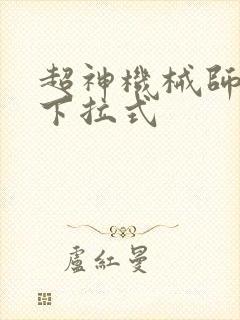 超神機械師
下拉式
盧紅曼